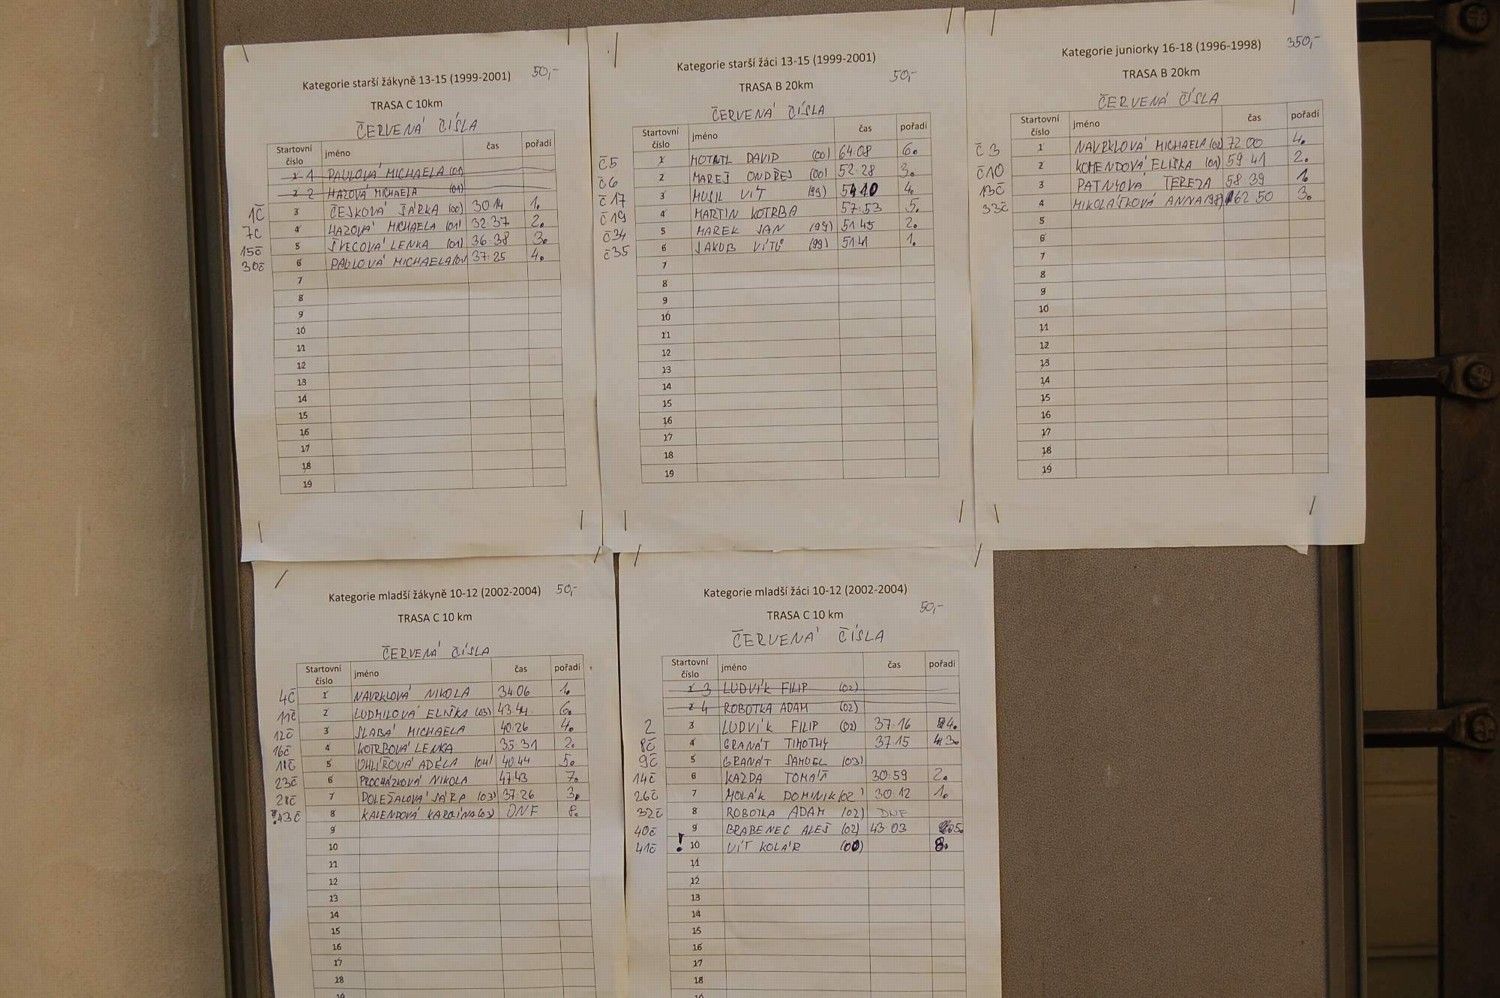 Kategorie starší žákyně 13-15 (1999-2001) 50,-
TRASA C 10km
ČERVENÁ ČÍSLA
Startovní číslo jméno čas pořadí
1 1 PAULOVÁ MICHAELA (01)
2 2 HAZOVÁ MICHAELA (01)
1Č 3 ČESKOVÁ ŠÁRKA (00) 30 14 1.
7Č 4 HAZOVÁ MICHAELA (01) 32 37 2.
15Č 5 ŠVECOVÁ LENKA (01) 36 38 3.
30Č 6 PAULOVÁ MICHAELA (01) 37 25 4.
7
8
9
10
11
12
13
14
15
16
17
18
19
Kategorie starší žáci 13-15 (1999-2001) 50,-
TRASA B 20km
ČERVENÁ ČÍSLA
Startovní číslo jméno čas pořadí
Č5 1 DAVID (00) 64 08 6.
Č6 2 MAREŠ ONDŘEJ (00) 52 28 3.
Č17 3 MUSIL VÍT (99) 4.
Č19 4 MARTIN KOTRBA 57 53 5.
Č34 5 MAREK JAN (99) 51 45 2.
Č35 6 JAKUB VÍTŮ (99) 51 41 1.
7
8
9
10
11
12
13
14
15
16
17
18
19
Kategorie juniorky 16-18 (1996-1998) 350,-
TRASA B 20km
ČERVENÁ ČÍSLA
Startovní číslo jméno čas pořadí
Č3 1 NAVRKLOVÁ MICHAELA 72 00 4.
Č10 2 KOMENDOVÁ ELIŠKA 59 41 2.
13Č 3 TEREZA 58 39 1.
33Č 4 MIKOLÁŠKOVÁ ANNA (98) 62 50 3.
5
6
7
8
9
10
11
12
13
14
15
16
17
18
19
Kategorie mladší žákyně 10-12 (2002-2004) 50,-
TRASA C 10 km
ČERVENÁ ČÍSLA
Startovní číslo jméno čas pořadí
4Č 1 NAVRKLOVÁ NIKOLA 34 06 1.
11Č 2 LUDMILOVÁ ELIŠKA (03) 43 44 6.
12Č 3 SLABÁ MICHAELA 40 26 4.
16Č 4 KOTRBOVÁ LENKA 35 31 2.
5 UHLÍŘOVÁ ADÉLA (04) 40 44 5.
23Č 6 PROCHÁZKOVÁ NIKOLA 47 43 7.
7 DOLEŽALOVÁ ŠÁRA (03) 37 26 3.
43Č 8 KALENDOVÁ KAROLÍNA (03) DNF 8.
9
10
11
12
13
14
15
16
17
18
19
Kategorie mladší žáci 10-12 (2002-2004)
50,-
TRASA C 10 km
ČERVENÁ ČÍSLA
Startovní číslo jméno čas pořadí
1 3 LUDVÍK FILIP (02)
2 4 ROBOTKA ADAM (02)
2 3 LUDVÍK FILIP (02) 37 16 4.
8Č 4 GRANÁT TIMOTHY 37 15 3.
9Č 5 GRANÁT SAMUEL (03)
14Č 6 KAZDA TOMÁŠ 30 59 2.
26Č 7 MOLÁK DOMINIK (02) 30 12 1.
32Č 8 ROBOTKA ADAM (02) DNF
40Č 9 BRABENEC ALEŠ (02) 43 03 5.
41Č ! 10 VÍT KOLÁŘ (00) 8.
11
12
13
14
15
16
17
18
19